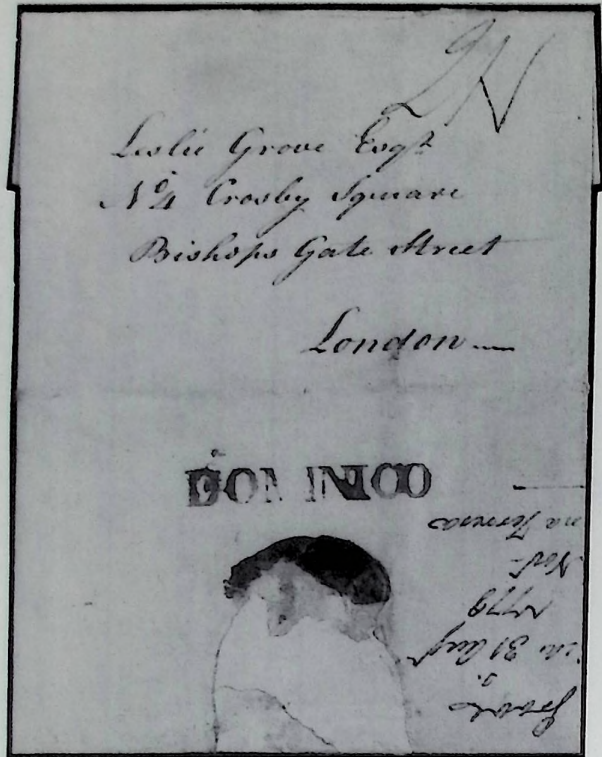 2N
Leslie Grove Esqr
No 4 Crosby Square
Bishops Gate Street
London
DOMINICO
Grove
31 Aug
1779
Novr